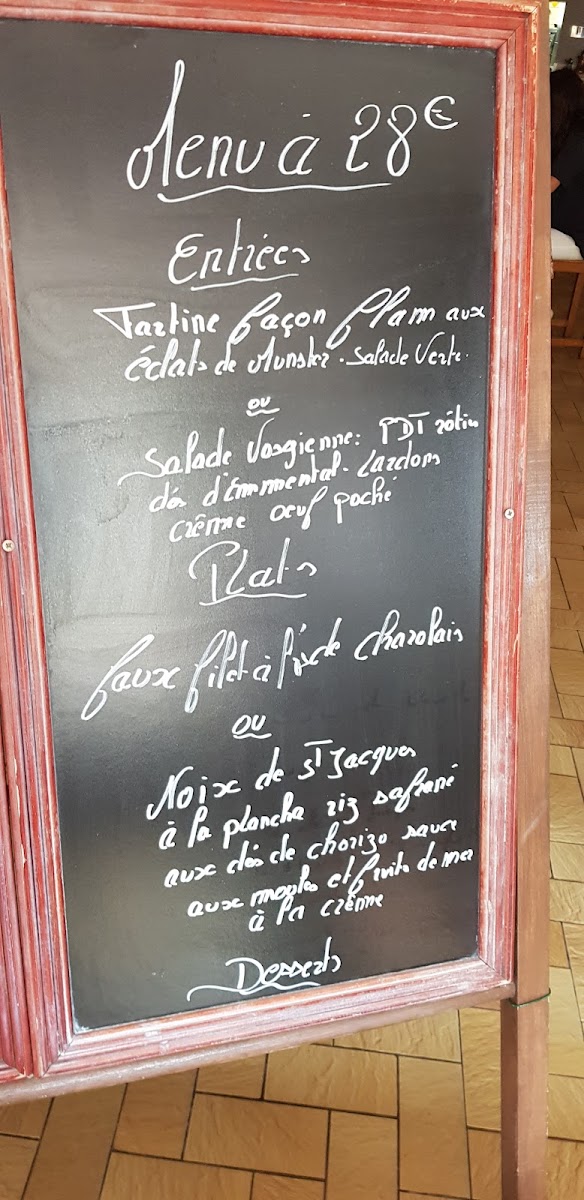 Menu à 28€
Entrées
Tartine façon flam aux
éclats de Munster. Salade Verte.
ou
Salade Vosgienne: PDT rôties
dés d'Emmental. Lardons
crème oeuf poché
Plats
faux filet à l' de charolais
ou
Noix de ST Jacques
à la plancha riz safrané
aux dés de chorizo sauce
aux moules et fruits de mer
à la crème
Desserts